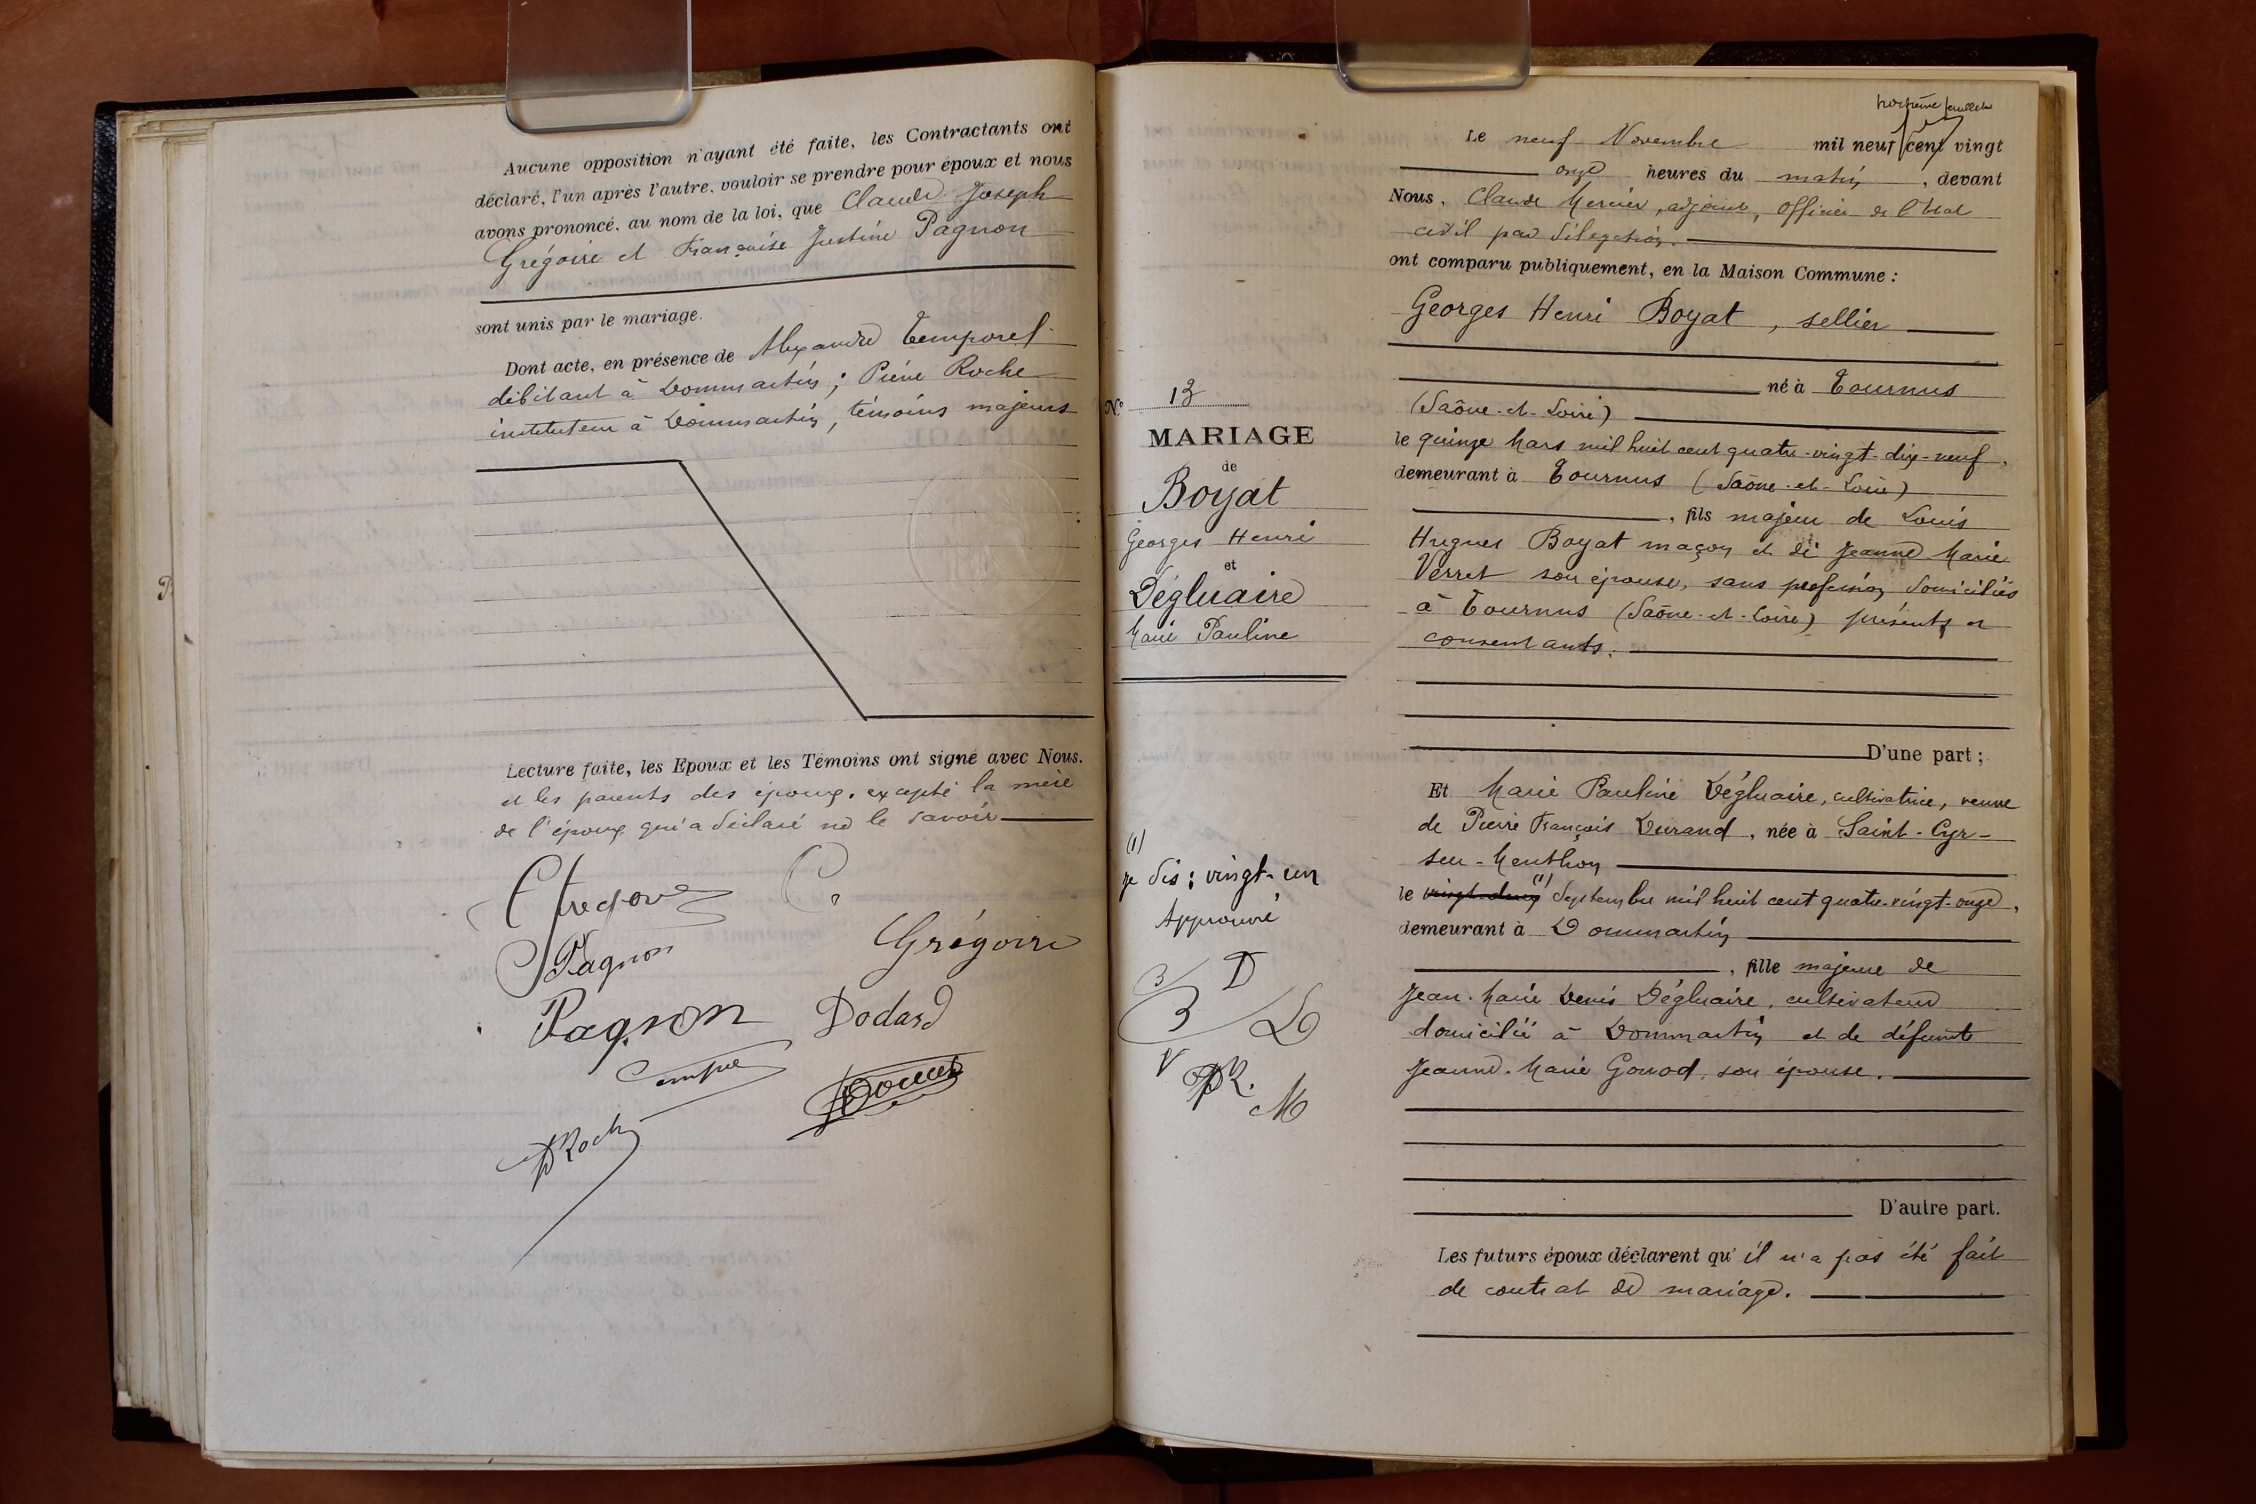 Aucune opposition n'ayant été faite, les Contractants ont
déclaré, l'un après l'autre, vouloir se prendre pour époux et nous
avons prononcé, au nom de la loi, que Claude Joseph
Grégoire et Françoise Justine Pagnon
sont unis par le mariage.
Dont acte, en présence de Alexandre Temporel
débitant à Dommartin ; Pierre Roche
instituteur à Dommartin, témoins majeurs
Lecture faite, les Epoux et les Témoins ont signé avec Nous.
et les parents des époux, excepté la mère
de l'époux qui a déclaré ne le savoir
Grégoire
Pagnon
Grégoire
Pagnon
Dodard
PRoche
N° 13
MARIAGE
de
Boyat
Georges Henri
et
Dégluaire
Marie Pauline
(1)
je dis : vingt-un
Approuvé
B D
B D
V PR.
M
feuillet
Le neuf Novembre mil neuf cent vingt
onze heures du matin, devant
Nous, Claude Mercier, adjoint, Officier de l'Etat
civil par délégation.
ont comparu publiquement, en la Maison Commune :
Georges Henri Boyat, sellier
né à Tournus
(Saône-et-Loire)
le quinze Mars mil huit cent quatre-vingt-dix-neuf,
demeurant à Tournus (Saône-et-Loire)
, fils majeur de Louis
Hugues Boyat maçon et de Jeanne Marie
Verret son épouse, sans profession, domiciliés
à Tournus (Saône-et-Loire) présents et
consentants.
D'une part ;
Et Marie Pauline Dégluaire, cultivatrice, veuve
de Pierre François Durand, née à Saint-Cyr-
sur-Menthon
le vingt-deux (1) Septembre mil huit cent quatre-vingt-onze,
demeurant à Dommartin
, fille majeure de
Jean-Marie Denis Dégluaire, cultivateur
domicilié à Dommartin et de défunte
Jeanne-Marie Gonod, son épouse.
D'autre part.
Les futurs époux déclarent qu'il n'a pas été fait
de contrat de mariage.